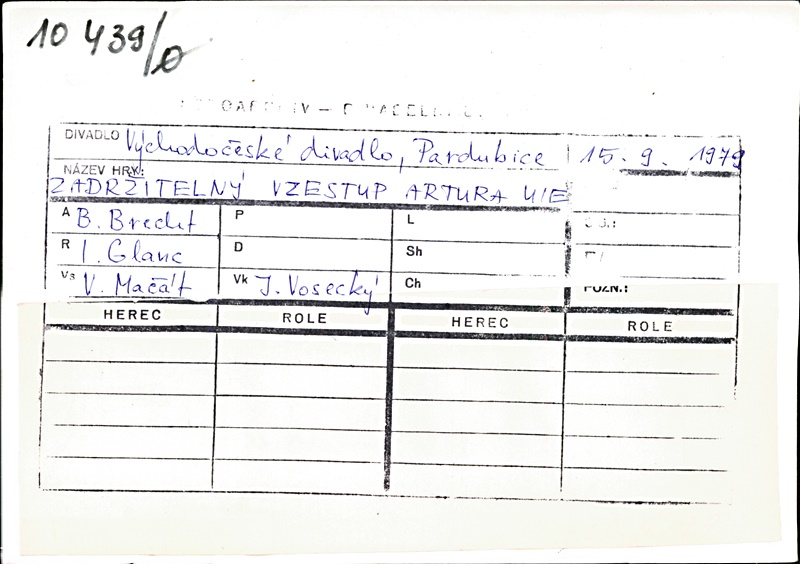 10 439/0
DIVADLO Východočeské divadlo, Pardubice 15. 9. 1979
NÁZEV HRY:
ZADRŽITELNÝ VZESTUP ARTURA UIE
A B. Brecht P L
R I. Glanc D Sh
Vs V. Mačát Vk J. Vosecký Ch POZN.:
HEREC ROLE HEREC ROLE